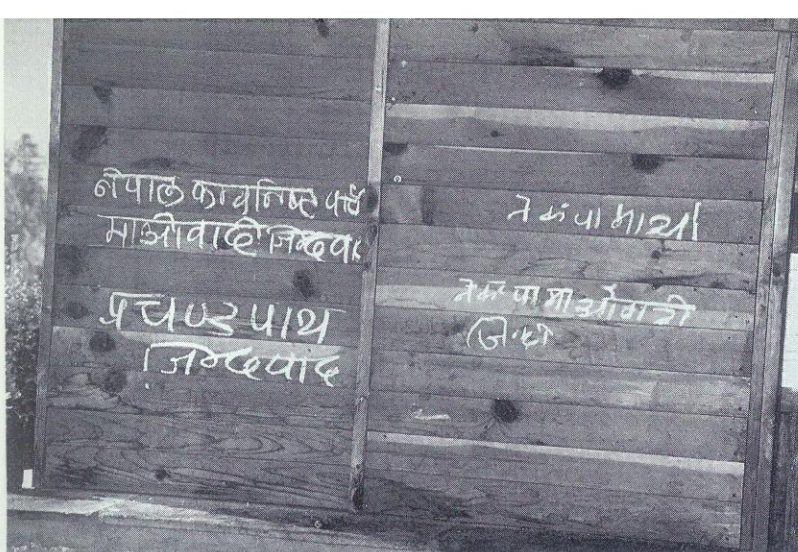 नेपाल कम्युनिष्ट पार्टी
माओवादी जिन्दवाद
प्रचण्ड पाथ
जिन्दवाद
नेकंपा माओ
नेकंपा माओवादी